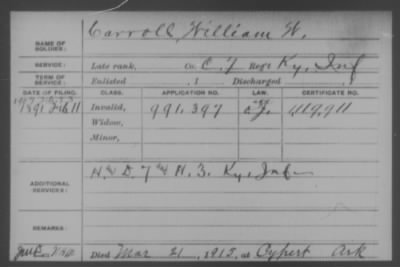 Carroll, William W.
NAME OF SOLDIER:
SERVICE: Late rank, Co. C. 7 Reg't Ky. Inf
TERM OF SERVICE: Enlisted , 1 Discharged , 1
DATE OF FILING. CLASS. APPLICATION NO. LAW. CERTIFICATE NO.
1891 Feb 11 Invalid, 991.397 419,911
Widow,
Minor,
ADDITIONAL SERVICES: D. 7 Ky. Inf
REMARKS:
Died Mar 21, 1915, at Cypert Ark